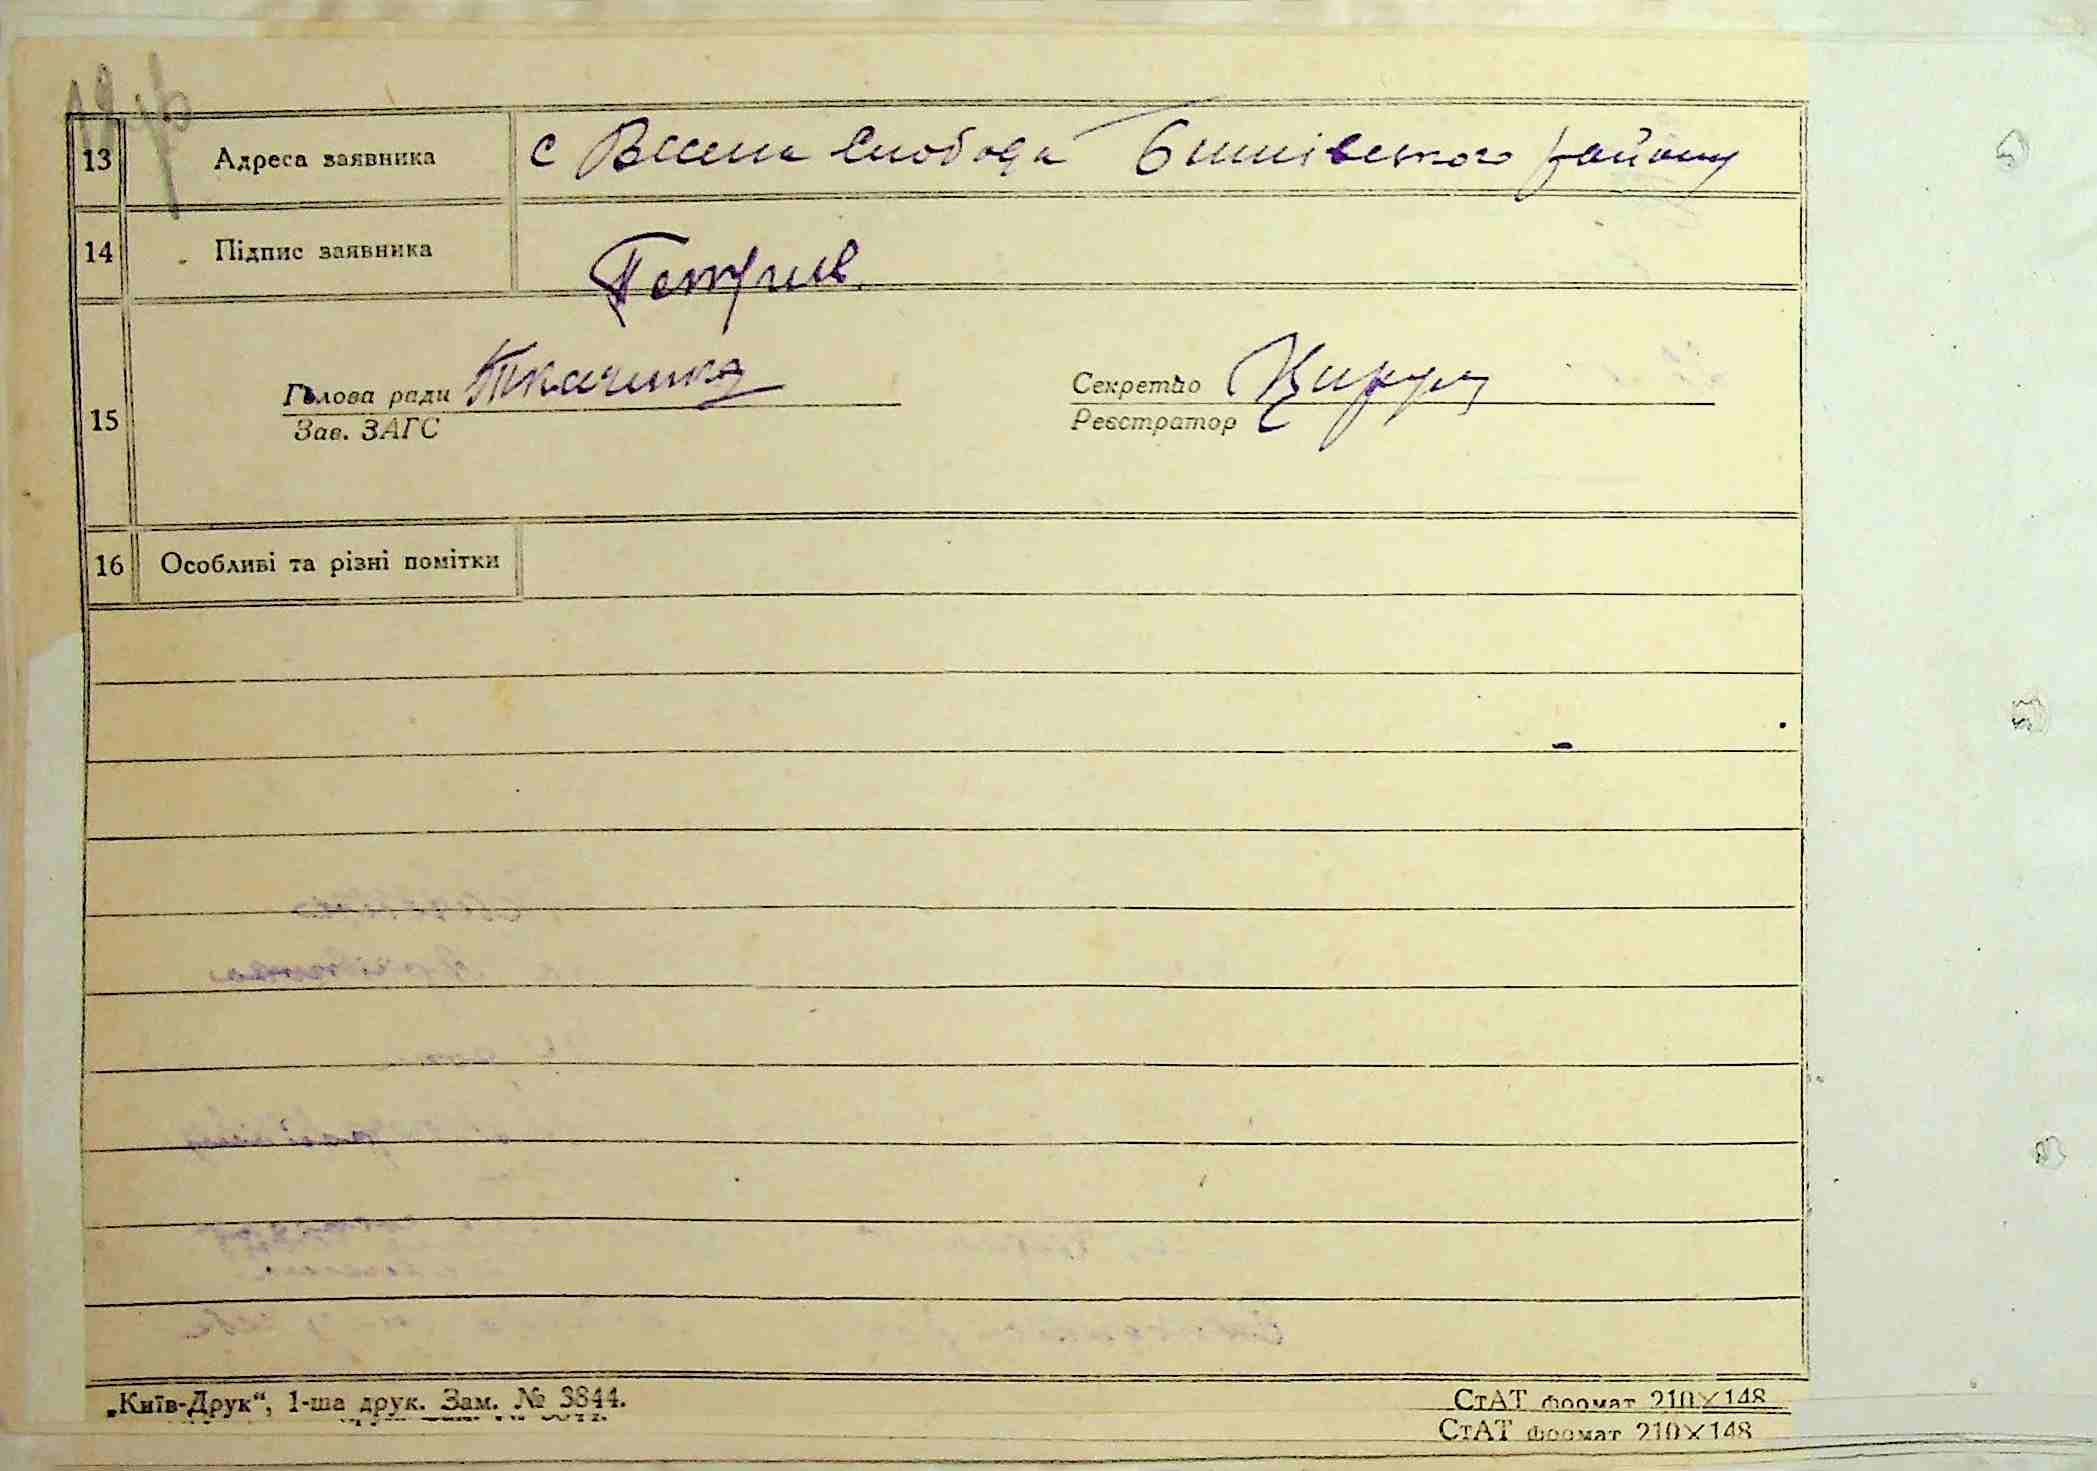 13 Адреса заявника с Весела Слобода Бишівського району
14 Підпис заявника Петрив
15 Голова ради Ткаченко Секретар
Зав. ЗАГС Реєстратор
16 Особливі та різні помітки
„Київ-Друк“, 1-ша друк. Зам. № 3844.
СтАТ формат 210×148
СтАТ формат 210×148